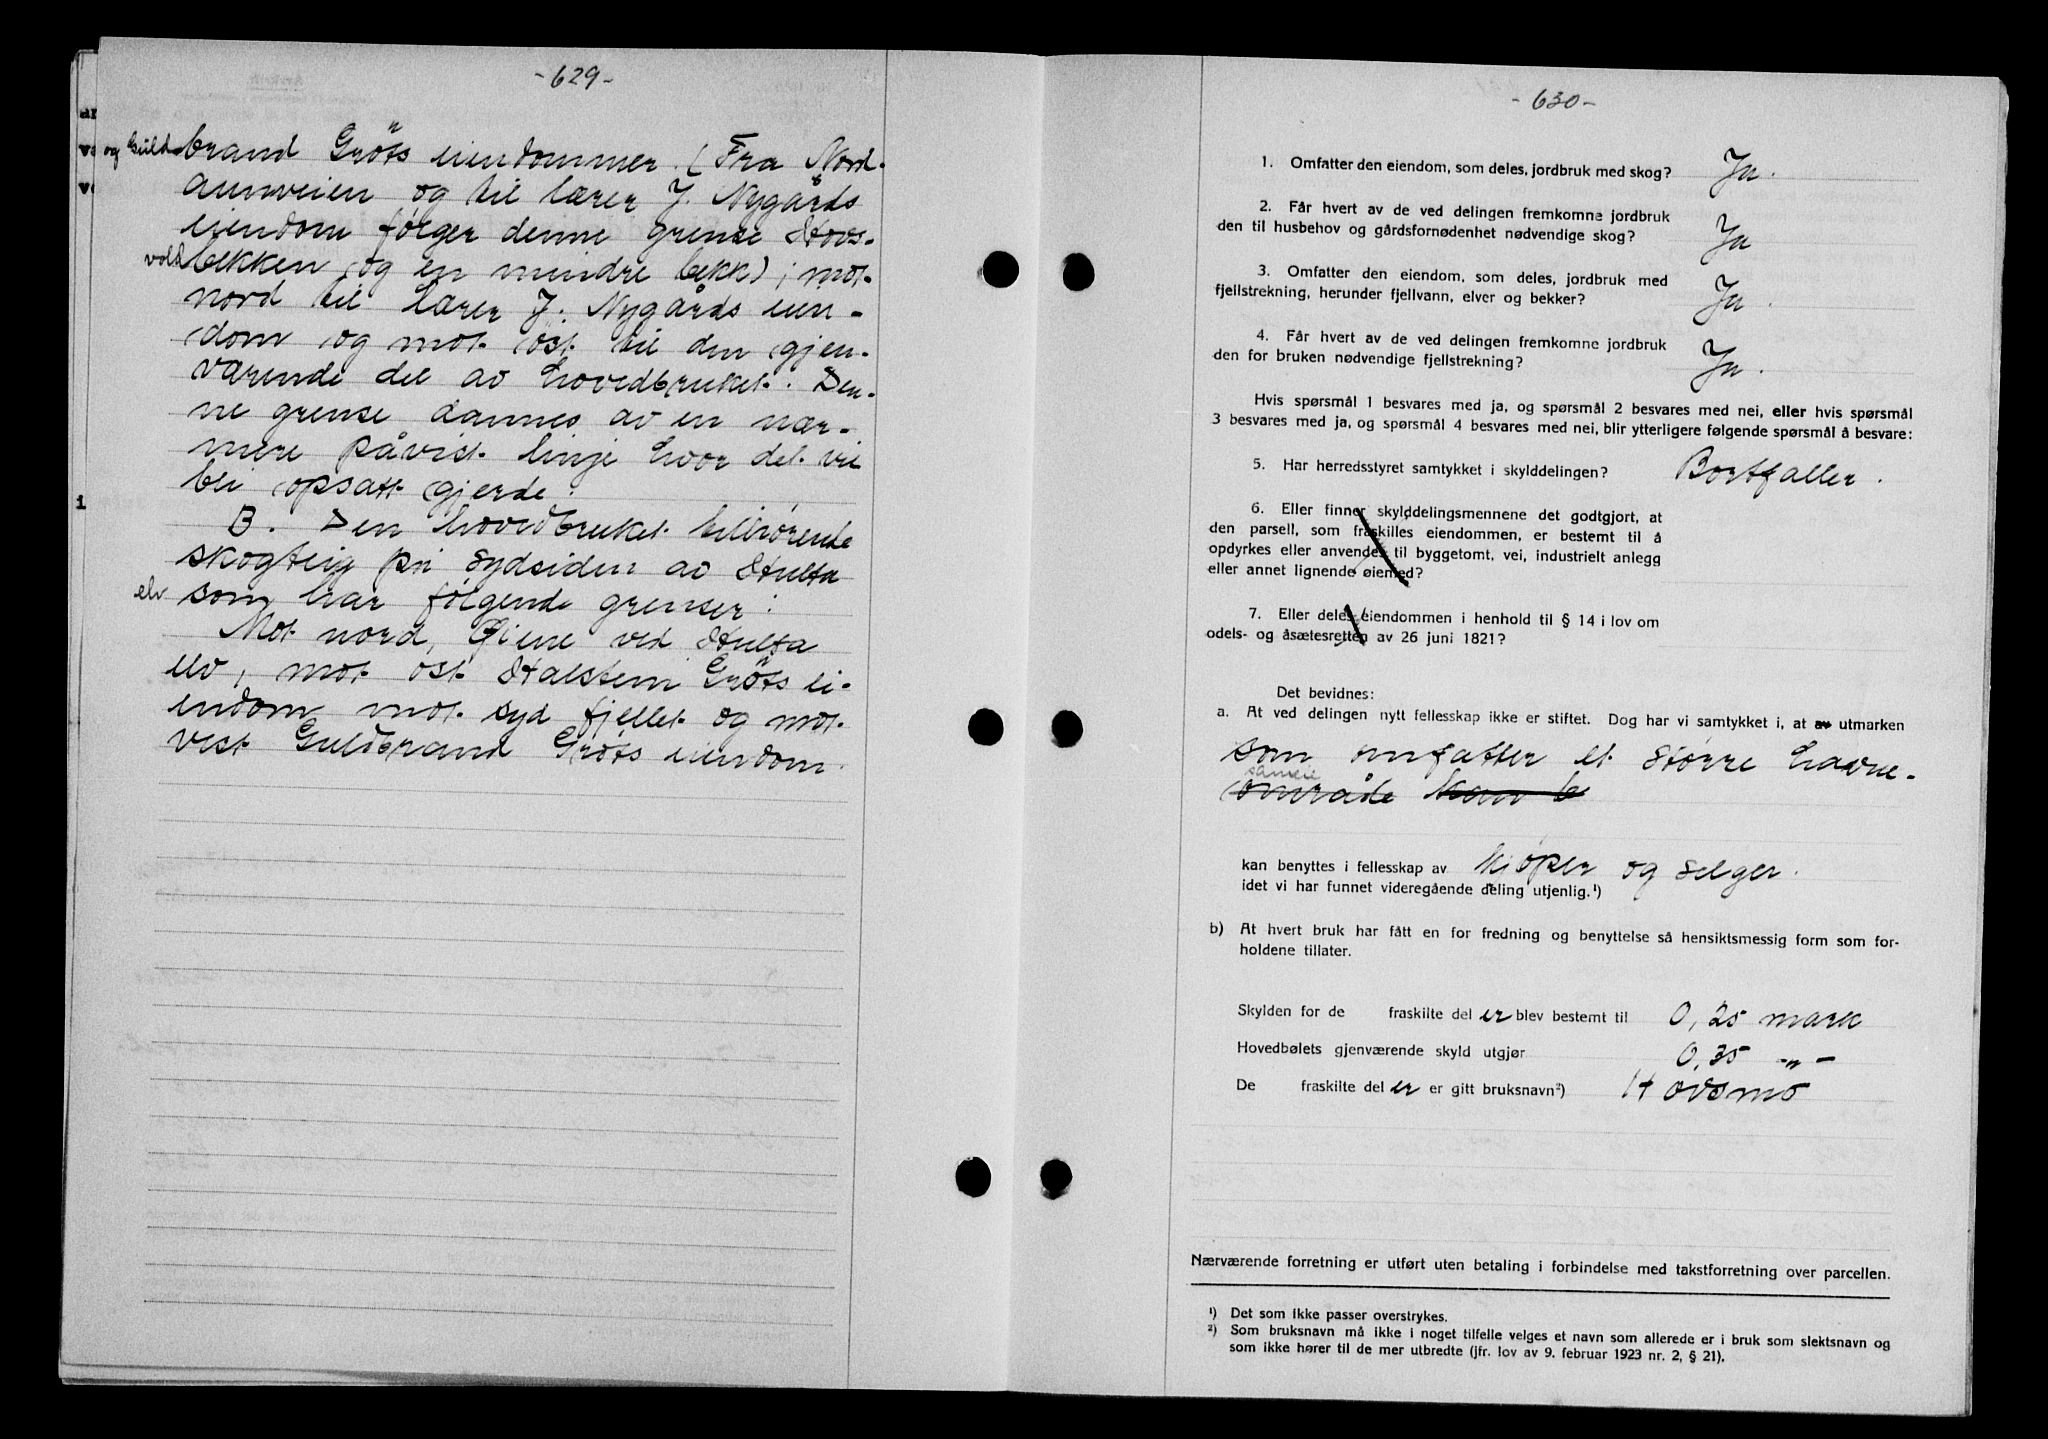 -629-
og Guldbrand Gröts eiendommer. (Fra Nord-
aunveien og til lærer J. Nygårds
eiendom følger denne grense Hovs-
voldbekken og en mindre bekk); mot
nord til lærer J. Nygårds eien-
dom og mot øst til den gjen-
værende del av hovedbruket. Den-
ne grense dannes av en nær-
mere påvist linje hvor det vil
bli opsatt gjerde.
B. Den hovedbruket tilhørende
skogteig på sydsiden av Hulta
elv som har følgende grenser:
Mot nord, Øiene ved Hulta
elv, mot øst Halstein Gröts ei-
endom mot syd fjellet og mot
vest Guldbrand Gröts eiendom.
-630-
1. Omfatter den eiendom, som deles, jordbruk med skog? Ja.
2. Får hvert av de ved delingen fremkomne jordbruk
den til husbehov og gårdsfornødenhet nødvendige skog? Ja
3. Omfatter den eiendom, som deles, jordbruk med
fjellstrekning, herunder fjellvann, elver og bekker? Ja.
4. Får hvert av de ved delingen fremkomne jordbruk
den for bruken nødvendige fjellstrekning? Ja.
Hvis spørsmål 1 besvares med ja, og spørsmål 2 besvares med nei, eller hvis spørsmål
3 besvares med ja, og spørsmål 4 besvares med nei, blir ytterligere følgende spørsmål å besvare:
5. Har herredsstyret samtykket i skylddelingen? Bortfaller.
6. Eller finner skylddelingsmennene det godtgjort, at
den parsell, som fraskilles eiendommen, er bestemt til å
opdyrkes eller anvendes til byggetomt, vei, industrielt anlegg
eller annet lignende øiemed?
7. Eller deles eiendommen i henhold til § 14 i lov om
odels- og åsætesretten av 26 juni 1821?
Det bevidnes:
a. At ved delingen nytt fellesskap ikke er stiftet. Dog har vi samtykket i, at av utmarken
som omfatter et større havne-
sameie
område kan b
kan benyttes i fellesskap av kjøper og selger.
idet vi har funnet videregående deling utjenlig.¹)
b) At hvert bruk har fått en for fredning og benyttelse så hensiktsmessig form som for-
holdene tillater.
Skylden for de fraskilte del er blev bestemt til 0,25 mark
Hovedbølets gjenværende skyld utgjør 0,35 -"-
De fraskilte del er er gitt bruksnavn²) Hovsmo
Nærværende forretning er utført uten betaling i forbindelse med takstforretning over parcellen.
¹) Det som ikke passer overstrykes.
²) Som bruksnavn må ikke i noget tilfelle velges et navn som allerede er i bruk som slektsnavn og
som ikke hører til de mer utbredte (jfr. lov av 9. februar 1923 nr. 2, § 21).